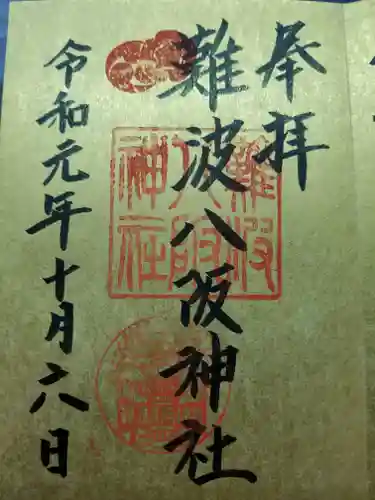 奉拝
難波八阪神社
難波八阪神社
令和元年十月六日